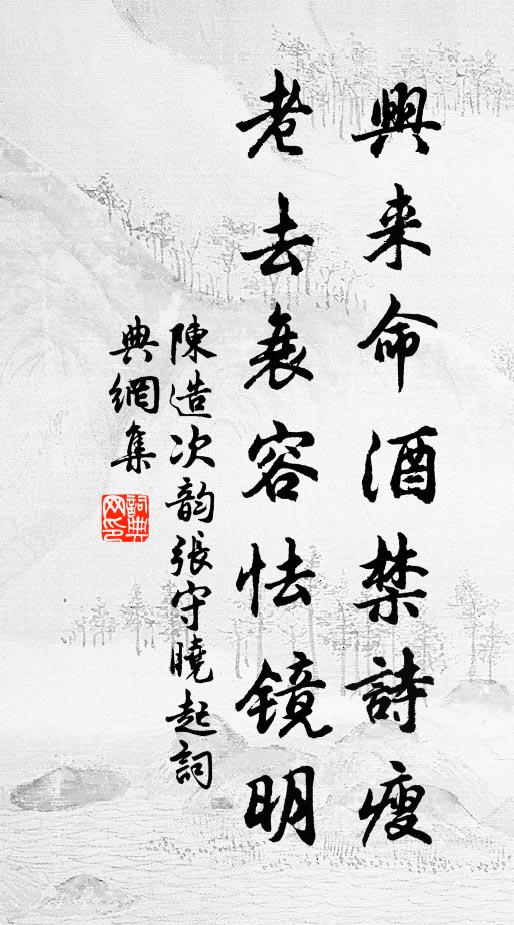 興来命酒禁詩瘦
老去衰容怯镜明
陳造次韵張守曉起詞
典網集
詞典网印